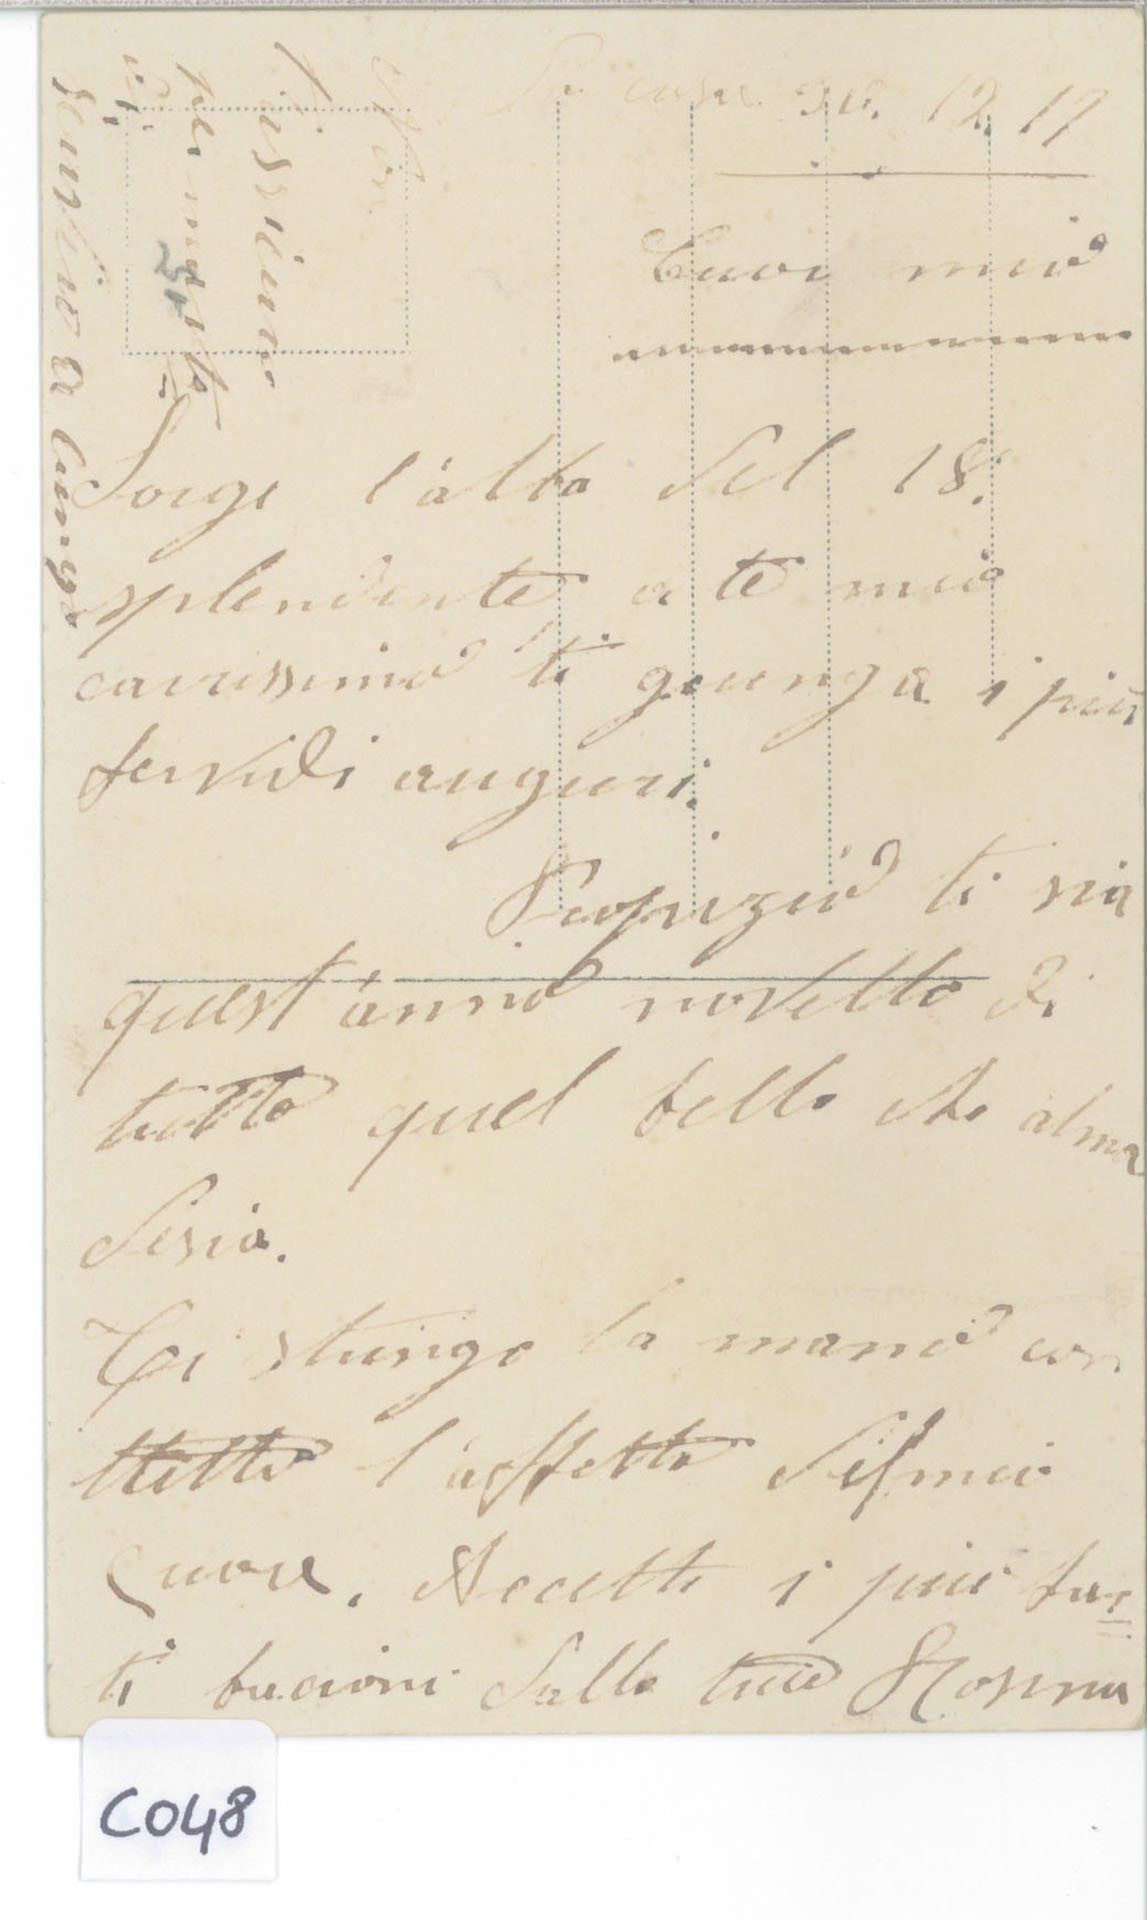 Da casa 30. 12. 17
Cuor mio
Sorge l'alba del 18.
splendente a te mio
carissimo ti giunga i più
fervidi auguri.
Propizio ti sia
quest'anno novello di
tutto quel bello che alma
desia.
Ti stringo la mano con
tutto l'affetto del mio
Cuore. Accetti i più for=
ti bacioni dalla tua
per
a lungo
C048